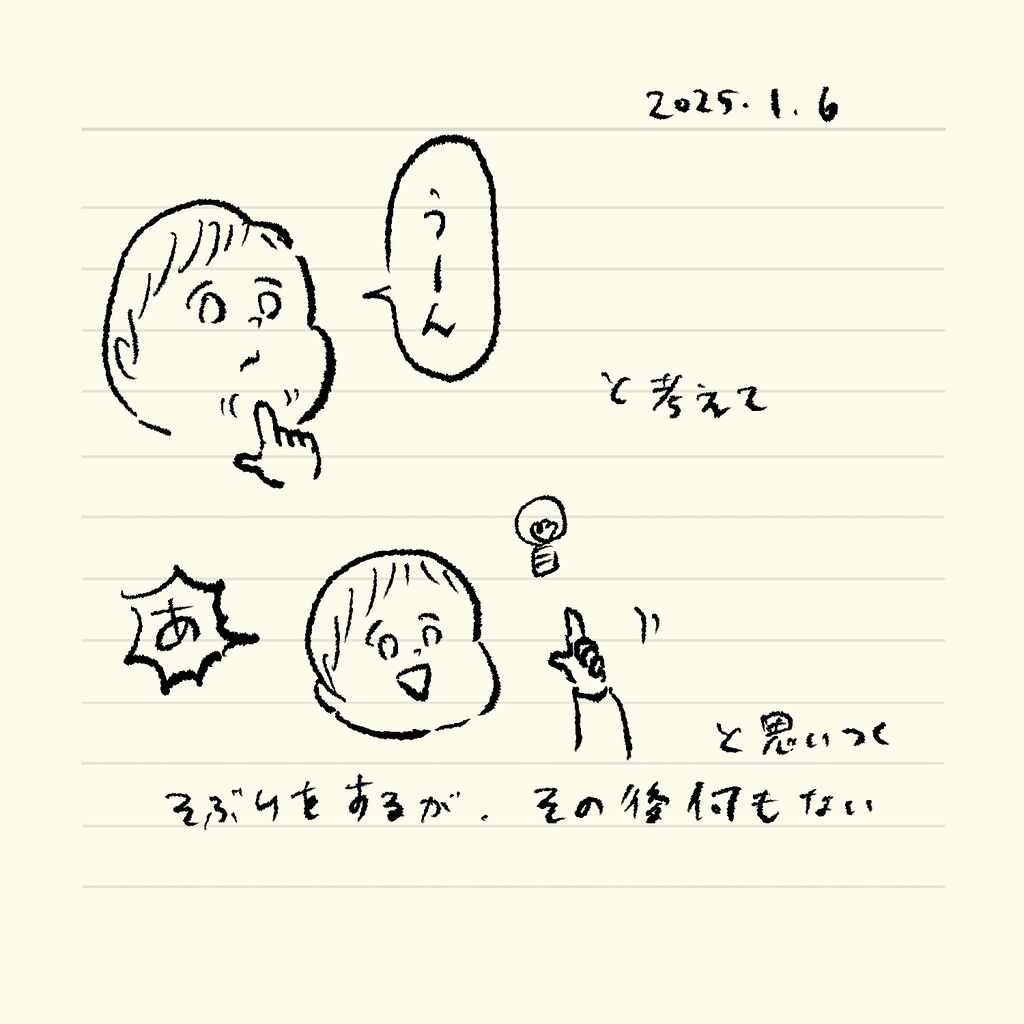 2025.1.6
うーん
と考えて
あ
と思いつく
そぶりをするが、その後何もない